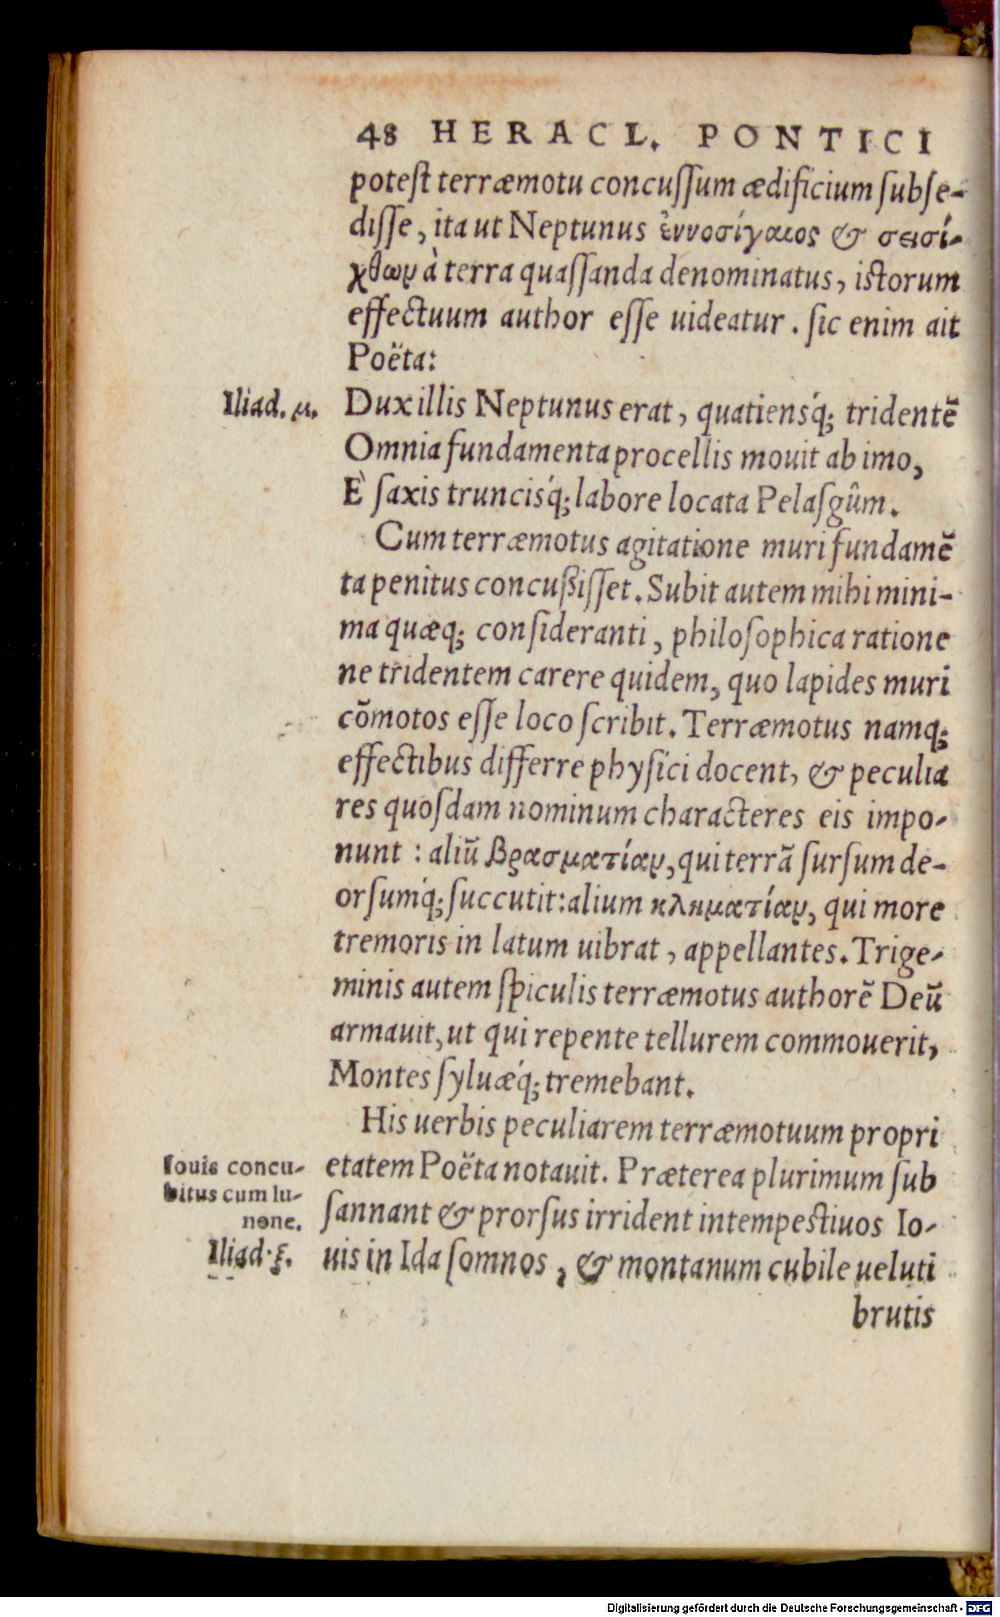 48 HERACL. PONTICI
potest terræmotu concussum ædificium subse-
disse, ita ut Neptunus ἐννοσίγαιος & σεισί-
χθων à terra quassanda denominatus, istorum
effectuum author esse uideatur. sic enim ait
Poëta:
Iliad. μ.
Dux illis Neptunus erat, quatiensq́; tridentē
Omnia fundamenta procellis mouit ab imo,
E' saxis truncisq́; labore locata Pelasgûm.
Cum terræmotus agitatione muri fundamē
ta penitus concußisset. Subit autem mihi mini-
ma quæq; consideranti, philosophica ratione
ne tridentem carere quidem, quo lapides muri
cōmotos esse loco scribit. Terræmotus namq;
effectibus differre physici docent, & peculia
res quosdam nominum characteres eis impo-
nunt : aliū βρασματίαν, qui terrā sursum de-
orsumq́; succutit: alium κληματίαν, qui more
tremoris in latum uibrat, appellantes. Trige-
minis autem spiculis terræmotus authorē Deū
armauit, ut qui repente tellurem commouerit,
Montes syluæq́; tremebant.
His uerbis peculiarem terræmotuum propri
etatem Poëta notauit. Præterea plurimum sub
sannant & prorsus irrident intempestiuos Io-
uis in Ida somnos, & montanum cubile ueluti
brutis
Iouis concu-
bitus cum Iu-
none.
Iliad. ξ.
Digitalisierung gefördert durch die Deutsche Forschungsgemeinschaft - DFG